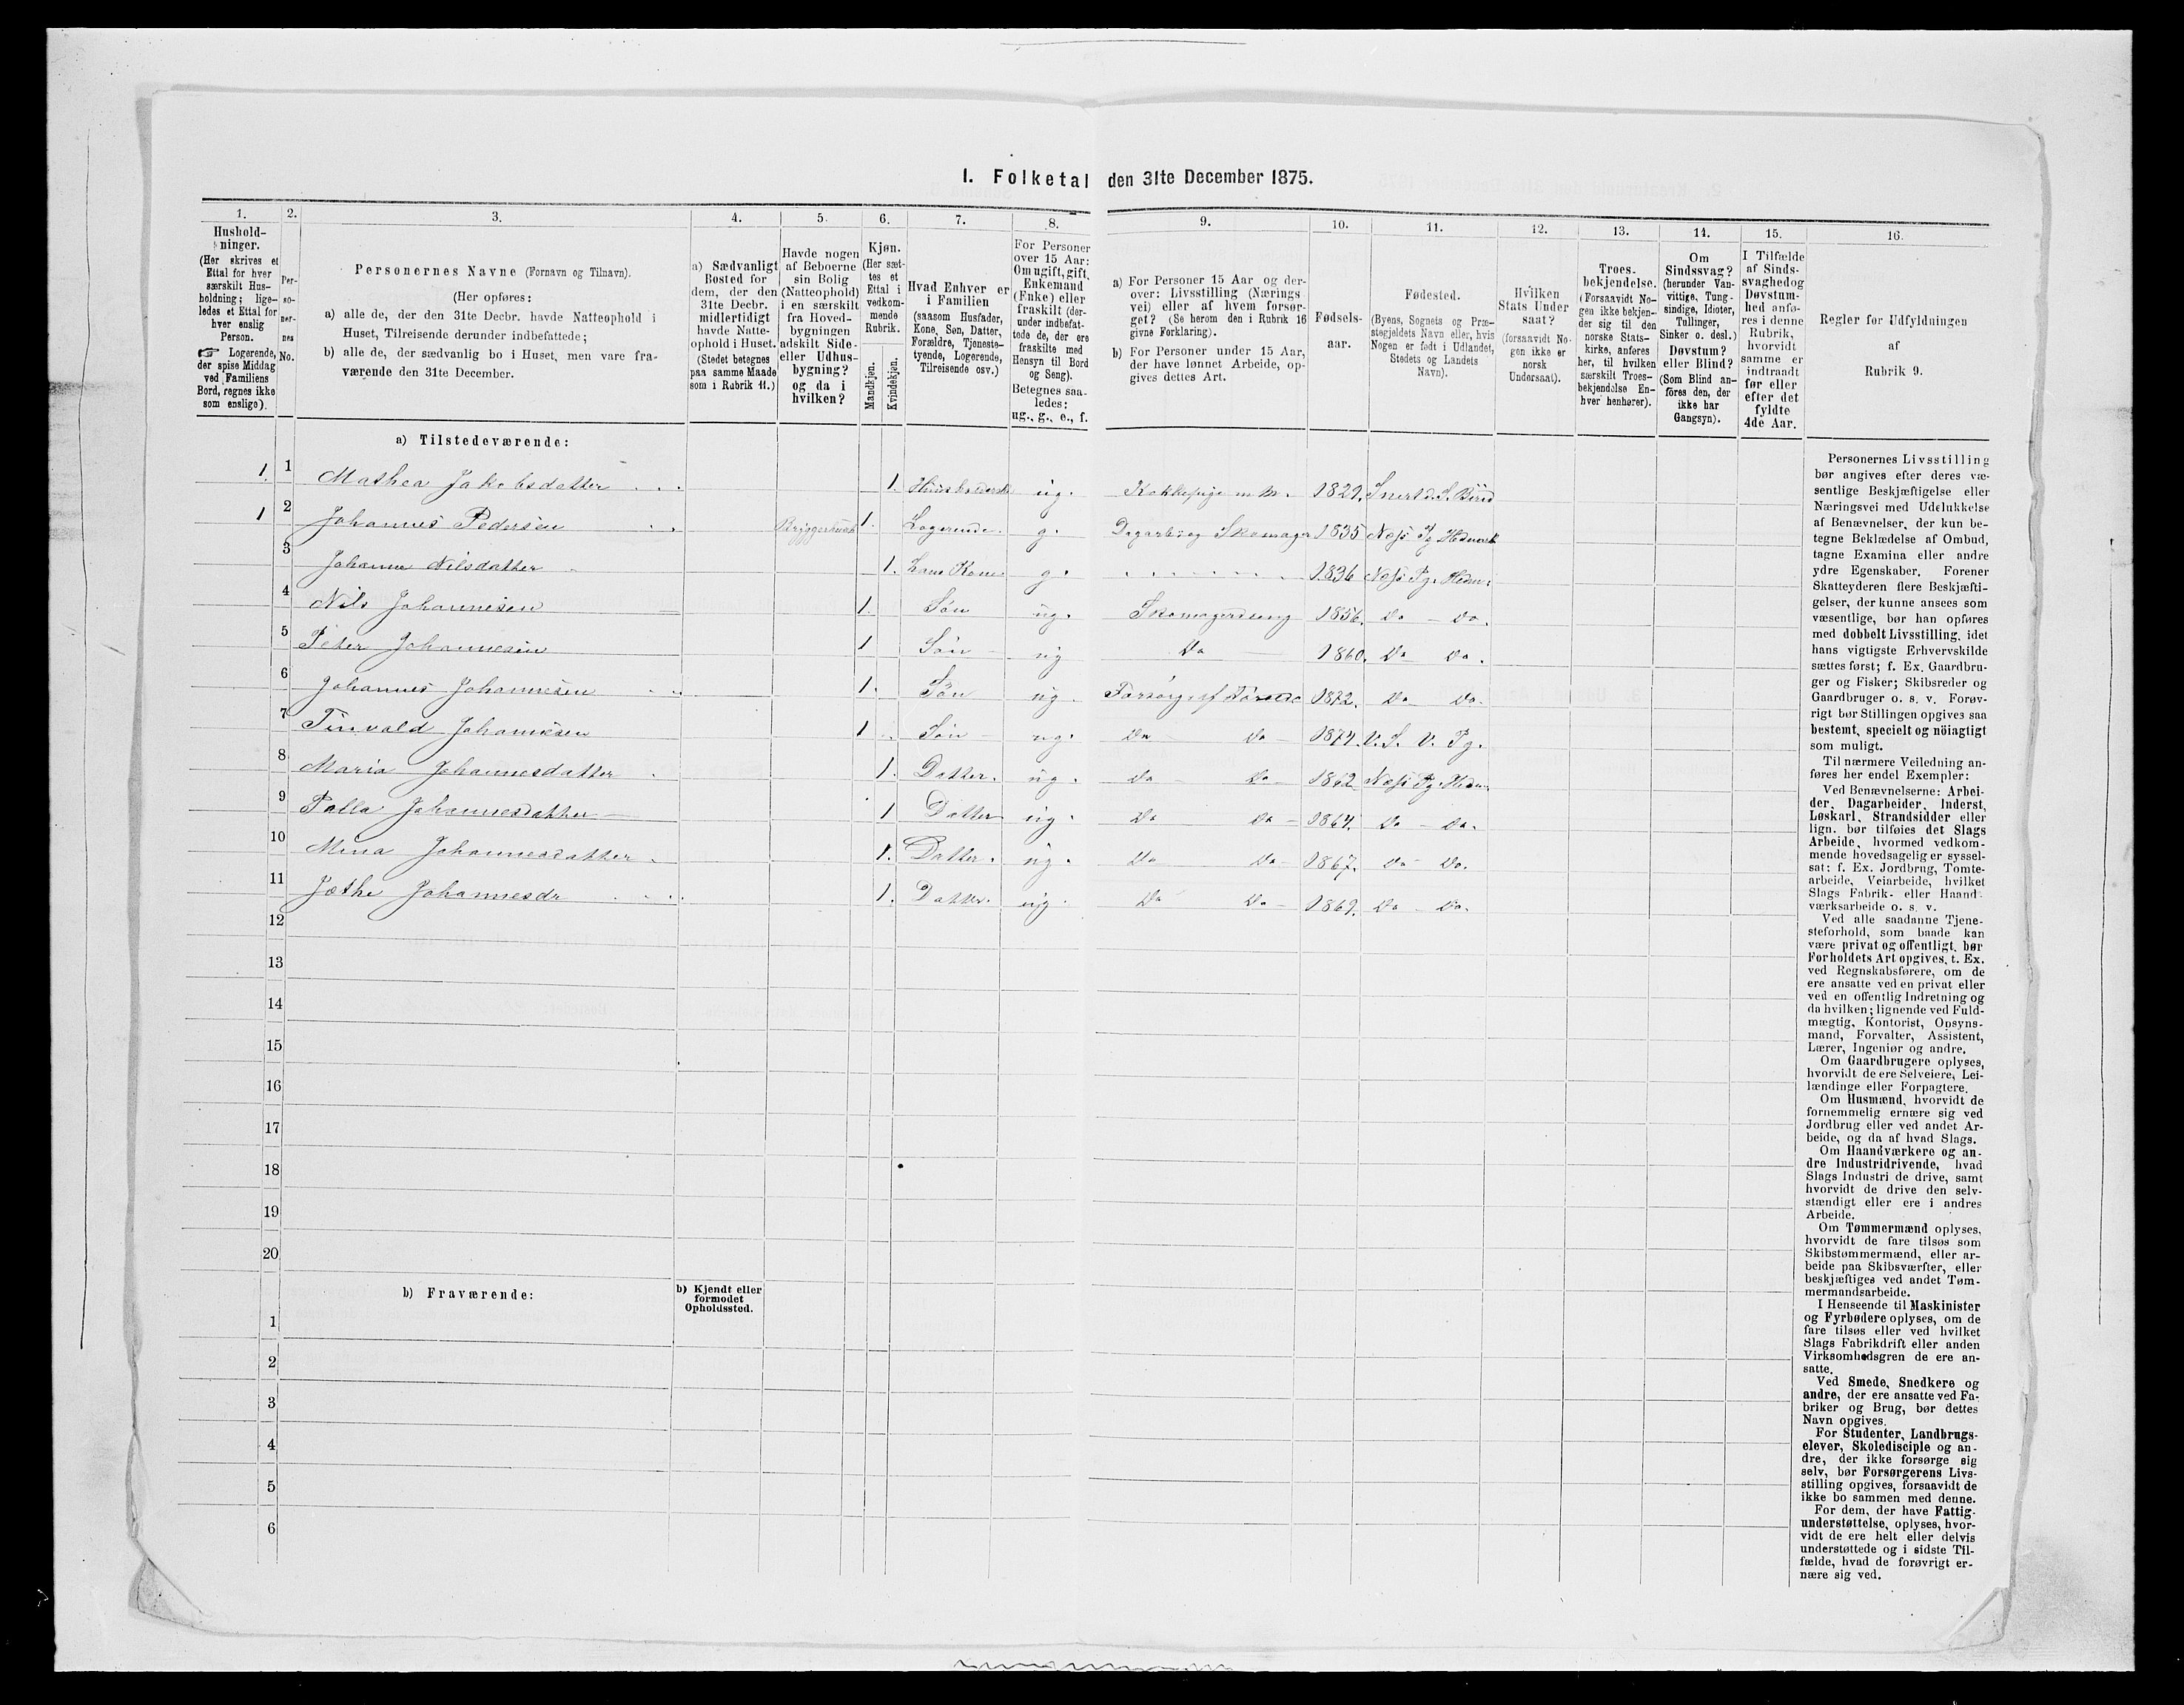 1. Folketal den 31te December 1875.
1. 2. 3. 4. 5. 6. 7. 8. 9. 10. 11. 12. 13. 14. 15. 16.
Hushold-
ninger.
(Her skrives et
Ettal for hver
særskilt Hus-
holdning; lige-
ledes et Ettal for
hver enslig
Person.
☞ Logerende,
der spise Middag
ved Familiens
Bord, regnes ikke
som enslige).
Per-
so-
ner-
nes
No.
Personernes Navne (Fornavn og Tilnavn).
(Her opføres:
a) alle de, der den 31te Decbr. havde Natteophold i
Huset, Tilreisende derunder indbefattede;
b) alle de, der sædvanlig bo i Huset, men vare fra-
værende den 31te December.
a) Sædvanligt
Bosted for
dem, der den
31te Decbr.
midlertidigt
havde Natte-
ophold i Huset.
(Stedet betegnes
paa samme Maade
som i Rubrik 11.)
Havde nogen
af Beboerne
sin Bolig
(Natteophold)
i en særskilt
fra Hoved-
bygningen
adskilt Side-
eller Udhus-
bygning?
og da i
hvilken?
Kjøn.
(Her sæt-
tes et
Ettal i
vedkom-
mende
Rubrik.
Mandkjøn.
Kvindekjøn.
Hvad Enhver er
i Familien
(saasom Husfader,
Kone, Søn, Datter,
Forældre, Tjeneste-
tyende, Logerende,
Tilreisende osv.)
For Personer
over 15 Aar:
Om ugift, gift,
Enkemand
(Enke) eller
fraskilt (der-
under indbefat-
tede de, der ere
fraskilte med
Hensyn til Bord
og Seng).
Betegnes saa-
ledes:
ug., g., e., f.
a) For Personer 15 Aar og der-
over: Livsstilling (Nærings-
vei) eller af hvem forsør-
get? (Se herom den i Rubrik 16
givne Forklaring).
b) For Personer under 15 Aar,
der have lønnet Arbeide, op-
gives dettes Art.
Fødsels-
aar.
Fødested.
(Byens, Sognets og Præ-
stegjeldets Navn eller, hvis
Nogen er født i Udlandet,
Stedets og Landets
Navn).
Hvilken
Stats Under
saat?
(forsaavidt No-
gen ikke er
norsk
Undersaat).
Troes-
bekjendelse.
(Forsaavidt No-
gen ikke bekjen-
der sig til den
norske Stats-
kirke, anføres
her, til hvilken
særskilt Troes-
bekjendelse En-
hver henhører).
Om
Sindssvag?
(herunder Van-
vittige, Tung-
sindige, Idioter,
Tullinger,
Sinker o. desl.)
Døvstum?
eller Blind?
(Som Blind an-
føres den, der
ikke har
Gangsyn).
I Tilfælde
af Sinds-
svaghedog
Døvstum-
hed anfø-
res i denne
Rubrik,
hvorvidt
samme er
indtraadt
før eller
efter det
fyldte
4de Aar.
Regler for Udfyldningen
af
Rubrik 9.
a) Tilstedeværende:
1 1 Mathea Jakobsdatter 1. ug. 1829.
1 2 Johannes Pedersen Bryggerhuset 1. Logerende g. Dagarb. og Skomager 1835 Næss Pg Hedmark
3 Johanne Nilsdatter 1. hans Kone g. 1836 Næss Pg. Hedm.
4 Nils Johannesen 1. Søn ug. 1856. Do - Do.
5 Peter Johannesen 1 Søn ug Do 1860. Do Do.
6 Johannes Johannesen 1. Søn ug. 1872. Do Do.
7 Johannesen 1 Søn ug. Do Do 1874. V. S. V. Pg.
8 Maria Johannesdatter 1. Datter. ug. Do Do 1862 Næss Pg. Hedm.
9 Johannesdatter 1 Datter ug. Do Do 1864. Do - Do.
10 Mina Johannesdatter 1. Datter. ug. Do Do 1867. Do Do.
11 Johannesdr 1. Datter. ug. Do Do 1869. Do - Do.
12
13
14
15
16
17
18
19
20
b) Fraværende:
b) Kjendt eller
formodet
Opholdssted.
1
2
3
4
5
6
Personernes Livsstilling
bør angives efter deres væ-
sentlige Beskjæftigelse eller
Næringsvei med Udelukkelse
af Benævnelser, der kun be-
tegne Beklædelse af Ombud,
tagne Examina eller andre
ydre Egenskaber. Forener
Skatteyderen flere Beskjæfti-
gelser, der kunne ansees som
væsentlige, bør han opføres
med dobbelt Livsstilling, idet
hans vigtigste Erhvervskilde
sættes først; f. Ex. Gaardbru-
ger og Fisker; Skibsreder og
Gaardbruger o. s. v. Forøv-
rigt bør Stillingen opgives saa
bestemt, specielt og nöiagtigt
som muligt.
Til nærmere Veiledning an-
føres her endel Exempler:
Ved Benævnelserne: Arbei-
der, Dagarbeider, Inderst,
Løskarl, Strandsidder eller
lign. bør tilføies det Slags
Arbeide, hvormed vedkom-
mende hovedsagelig er syssel-
sat; f. Ex. Jordbrug, Tomte-
arbeide, Veiarbeide, hvilket
Slags Fabrik- eller Haand-
værksarbeide o. s. v.
Ved alle saadanne Tjene-
steforhold, som baade kan
være privat og offentligt, bør
Forholdets Art opgives, t. Ex.
ved Regnskabsførere, om de
ere ansatte ved en privat eller
ved en offentlig Indretning og
da hvilken; lignende ved Fuld-
mægtig, Kontorist, Opsyns-
mand, Forvalter, Assistent,
Lærer, Ingeniør og andre.
Om Gaardbrugere oplyses,
hvorvidt de ere Selveiere, Lei-
lændinge eller Forpagtere.
Om Husmænd, hvorvidt de
fornemmelig ernære sig ved
Jordbrug eller ved andet Ar-
beide, og da af hvad Slags.
Om Haandværkere og an-
dre Industridrivende, hvad
Slags Industri de drive, samt
hvorvidt de drive den selv-
stændigt eller ere i andres
Arbeide.
Om Tømmermænd oplyses,
hvorvidt de fare tilsøs som
Skibstømmermænd, eller ar-
beide paa Skibsværfter, eller
beskjæftiges ved andet Tøm-
mermandsarbeide.
I Henseende til Maskinister
og Fyrbødere oplyses, om de
fare tilsøs eller ved hvilket
Slags Fabrikdrift eller anden
Virksomhedsgren de ere an-
satte.
Ved Smede, Snedkere og
andre, der ere ansatte ved Fa-
briker og Brug, bør dettes
Navn opgives.
For Studenter, Landbrugs-
elever, Skoledisciple og an-
dre, der ikke forsørge sig
selv, bør Forsørgerens Livs-
stilling opgives, forsaavidt de
ikke bo sammen med denne.
For dem, der have Fattig-
understøttelse, oplyses, hvor-
vidt de ere helt eller delvis
understøttede og i sidste Til-
fælde, hvad de forøvrigt er-
nære sig ved.